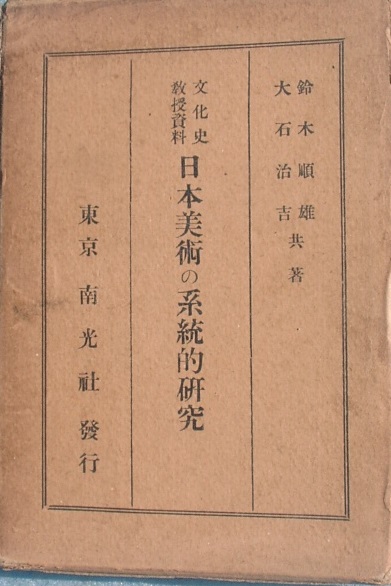 鈴木順雄
大石治吉
共著
文化史
教授資料
日本美術の系統的研究
東京 南光社 發行